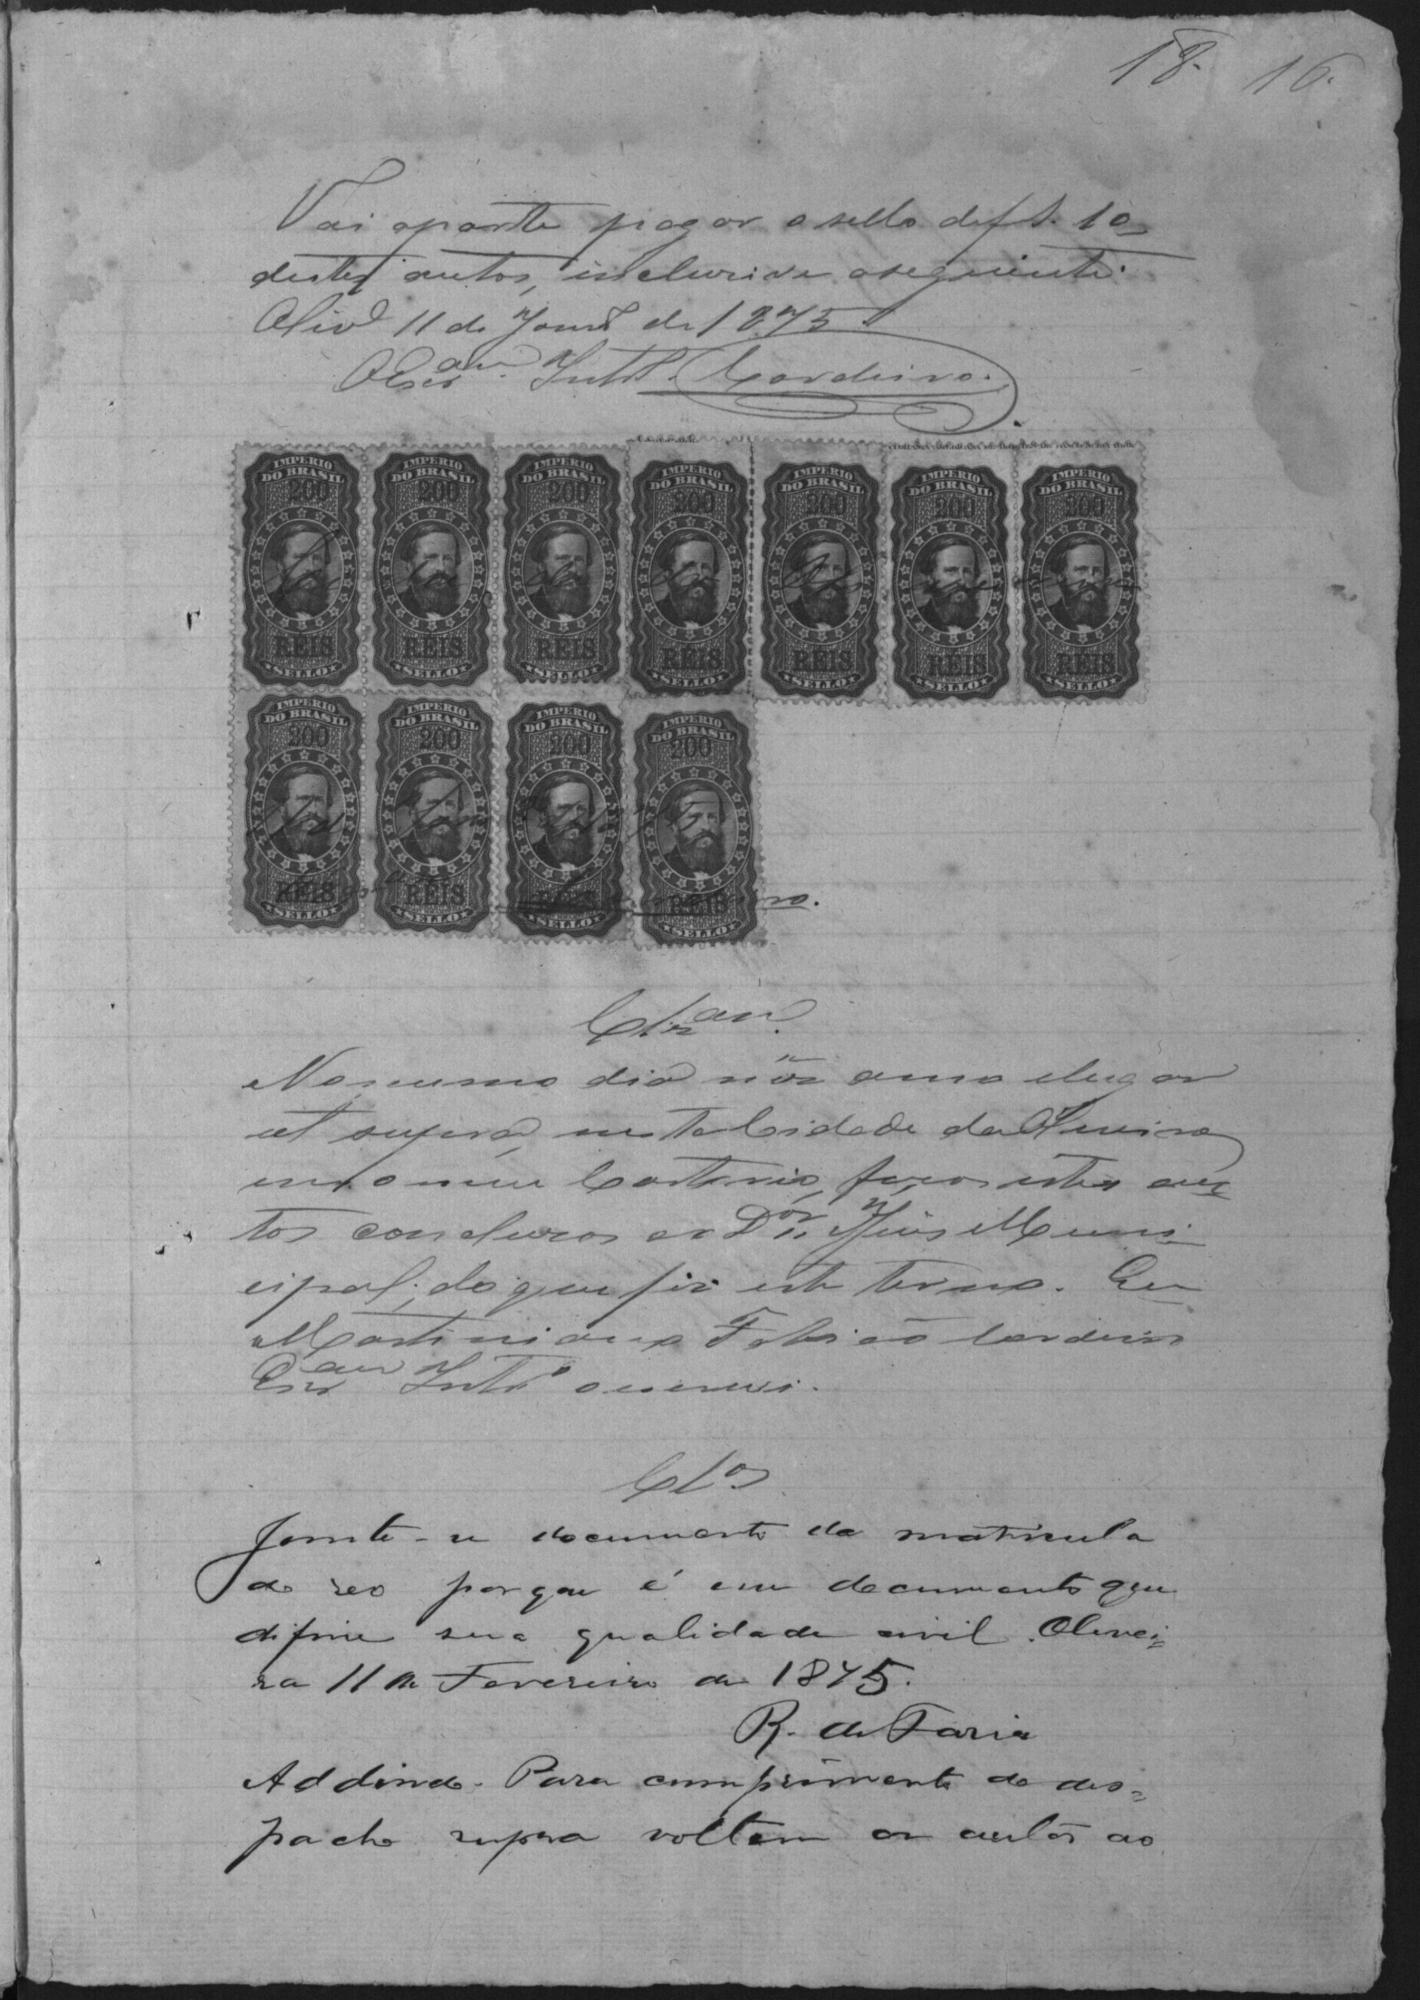 18. 16.
Vai a parte pagar o sello de fls. 10
destes autos, inclusive a seguinte.
Olivª 11 de de 1875.
O Escram Intº Cordeiro.
IMPERIO DO BRASIL 200 REIS SELLO
IMPERIO DO BRASIL 200 REIS SELLO
IMPERIO DO BRASIL 200 REIS SELLO
IMPERIO DO BRASIL 200 REIS SELLO
IMPERIO DO BRASIL 200 REIS SELLO
IMPERIO DO BRASIL 200 REIS SELLO
IMPERIO DO BRASIL 200 REIS SELLO
IMPERIO DO BRASIL 200 REIS SELLO
IMPERIO DO BRASIL 200 REIS SELLO
IMPERIO DO BRASIL 200 REIS SELLO
IMPERIO DO BRASIL 200 REIS SELLO
Clzam
No mesmo dia mez anno e lugar
ut supra, nesta Cidade da Oliveira
em o meu Cartorio, faço estes au=
tos conclusos ao Dor Juis Muni
cipal; do que fiz este termo. Eu
Martiniano Fabião Cordeiro
Escram Intº o escrevi.
Clos
Junte-se documento da matricula
do reo porque é um documento que
difine sua qualidade civil. Olivei=
ra 11 de Fevereiro de 1875.
R. de Faria
Addindo. Para cumprimento do des=
pacho supra voltem os autos ao